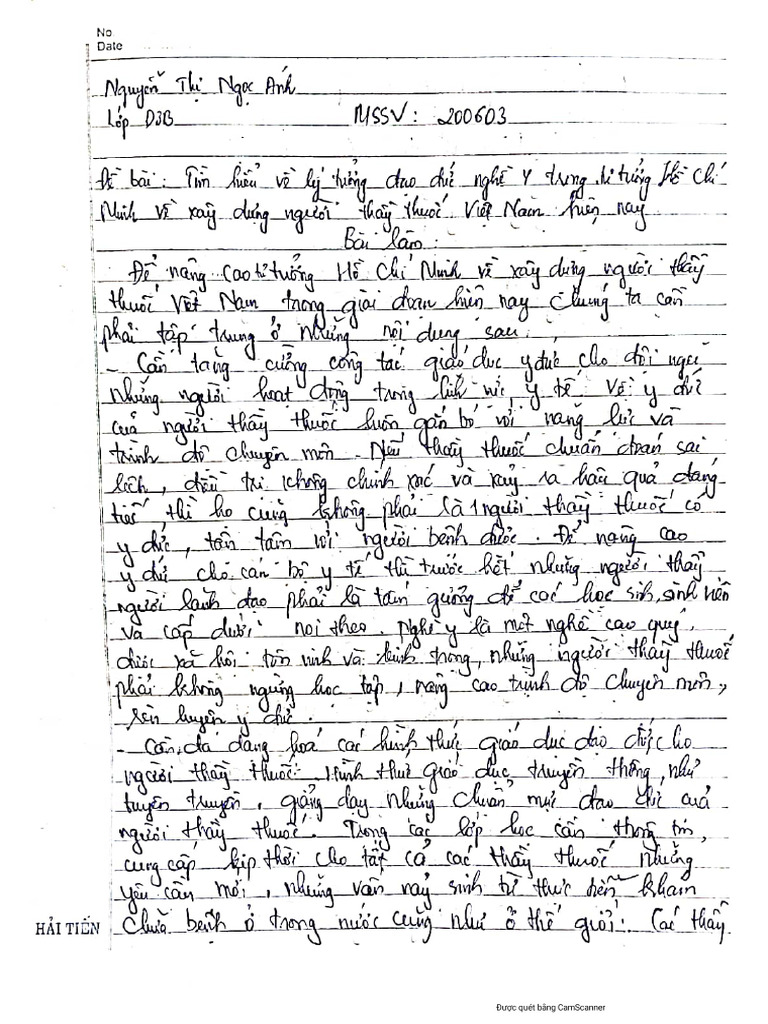 No.
Date
Nguyễn Thị Ngọc Ánh
Lớp D3B MSSV: 200603
Đề bài: Tìm hiểu về lý tưởng đạo đức nghề Y trong tư tưởng Hồ Chí
Minh về xây dựng người thầy thuốc Việt Nam hiện nay
Bài làm:
Để nâng cao tư tưởng Hồ Chí Minh về xây dựng người thầy
thuốc Việt Nam trong giai đoạn hiện nay chúng ta cần
phải tập trung ở những nội dung sau:
- Cần tăng cường công tác giáo dục y đức cho đội ngũ
những người hoạt động trong lĩnh vực y tế. Về y đức
của người thầy thuốc luôn gắn bó với năng lực và
trình độ chuyên môn. Nếu thầy thuốc chuẩn đoán sai
lệch, điều trị không chính xác và xảy ra hậu quả đáng
tiếc, thì họ cũng không phải là 1 người thầy thuốc có
y đức, tận tâm với người bệnh được. Để nâng cao
y đức cho cán bộ y tế thì trước hết những người thầy
người lãnh đạo phải là tấm gương để các học sinh, sinh viên
và cấp dưới noi theo. Nghề y là một nghề cao quý,
được xã hội tôn vinh và kính trọng, những người thầy thuốc
phải không ngừng học tập, nâng cao trình độ chuyên môn,
rèn luyện y đức.
- Cần đa dạng hoá các hình thức giáo dục đạo đức cho
người thầy thuốc: Hình thức giáo dục truyền thống, như
tuyên truyền, giảng dạy những chuẩn mực đạo đức của
người thầy thuốc. Trong các lớp học cần thông tin,
cung cấp kịp thời cho tất cả các thầy thuốc những
yêu cầu mới, những vấn nảy sinh từ thực tiễn khám
chữa bệnh ở trong nước cũng như ở thế giới. Các thầy
HẢI TIẾN
Được quét bằng CamScanner